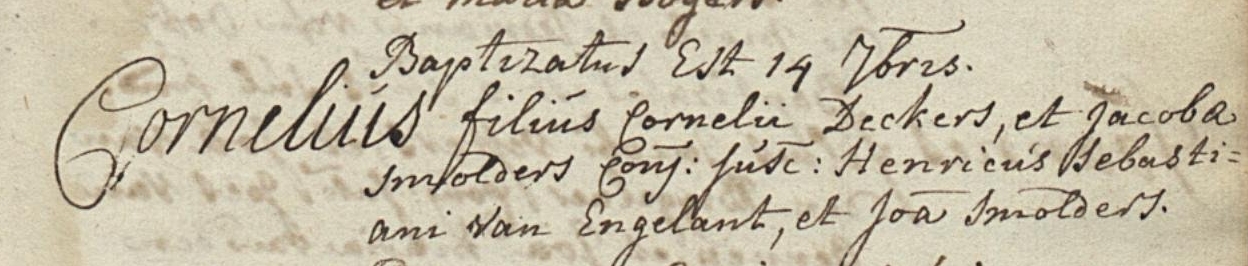 et maria Rogers.
Baptizatus Est 14 7bris.
Corneliús filiús Cornelii Deckers, et Jacoba
Smolders Conj: súsc: Henricús Sebasti=
ani van Engelant, et Joa Smolders.